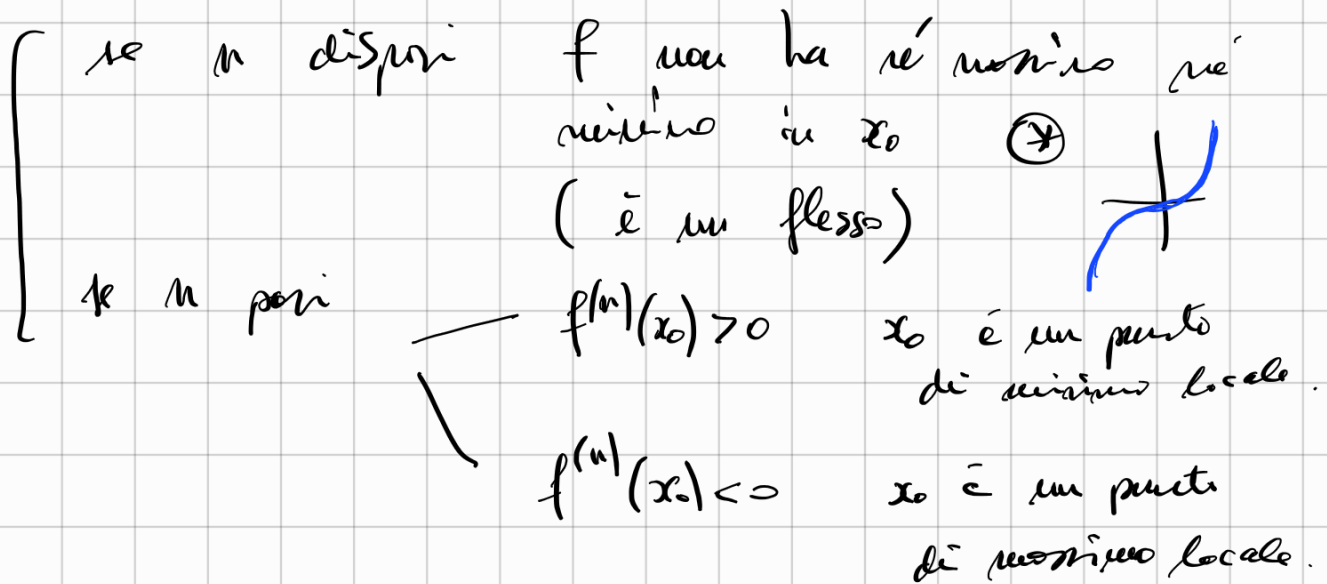 se n dispari f non ha né massimo né
minimo in x₀ (*)
(è un flesso)
se n pari f⁽ⁿ⁾(x₀) > 0 x₀ è un punto
di minimo locale.
f⁽ⁿ⁾(x₀) < 0 x₀ è un punto
di massimo locale.